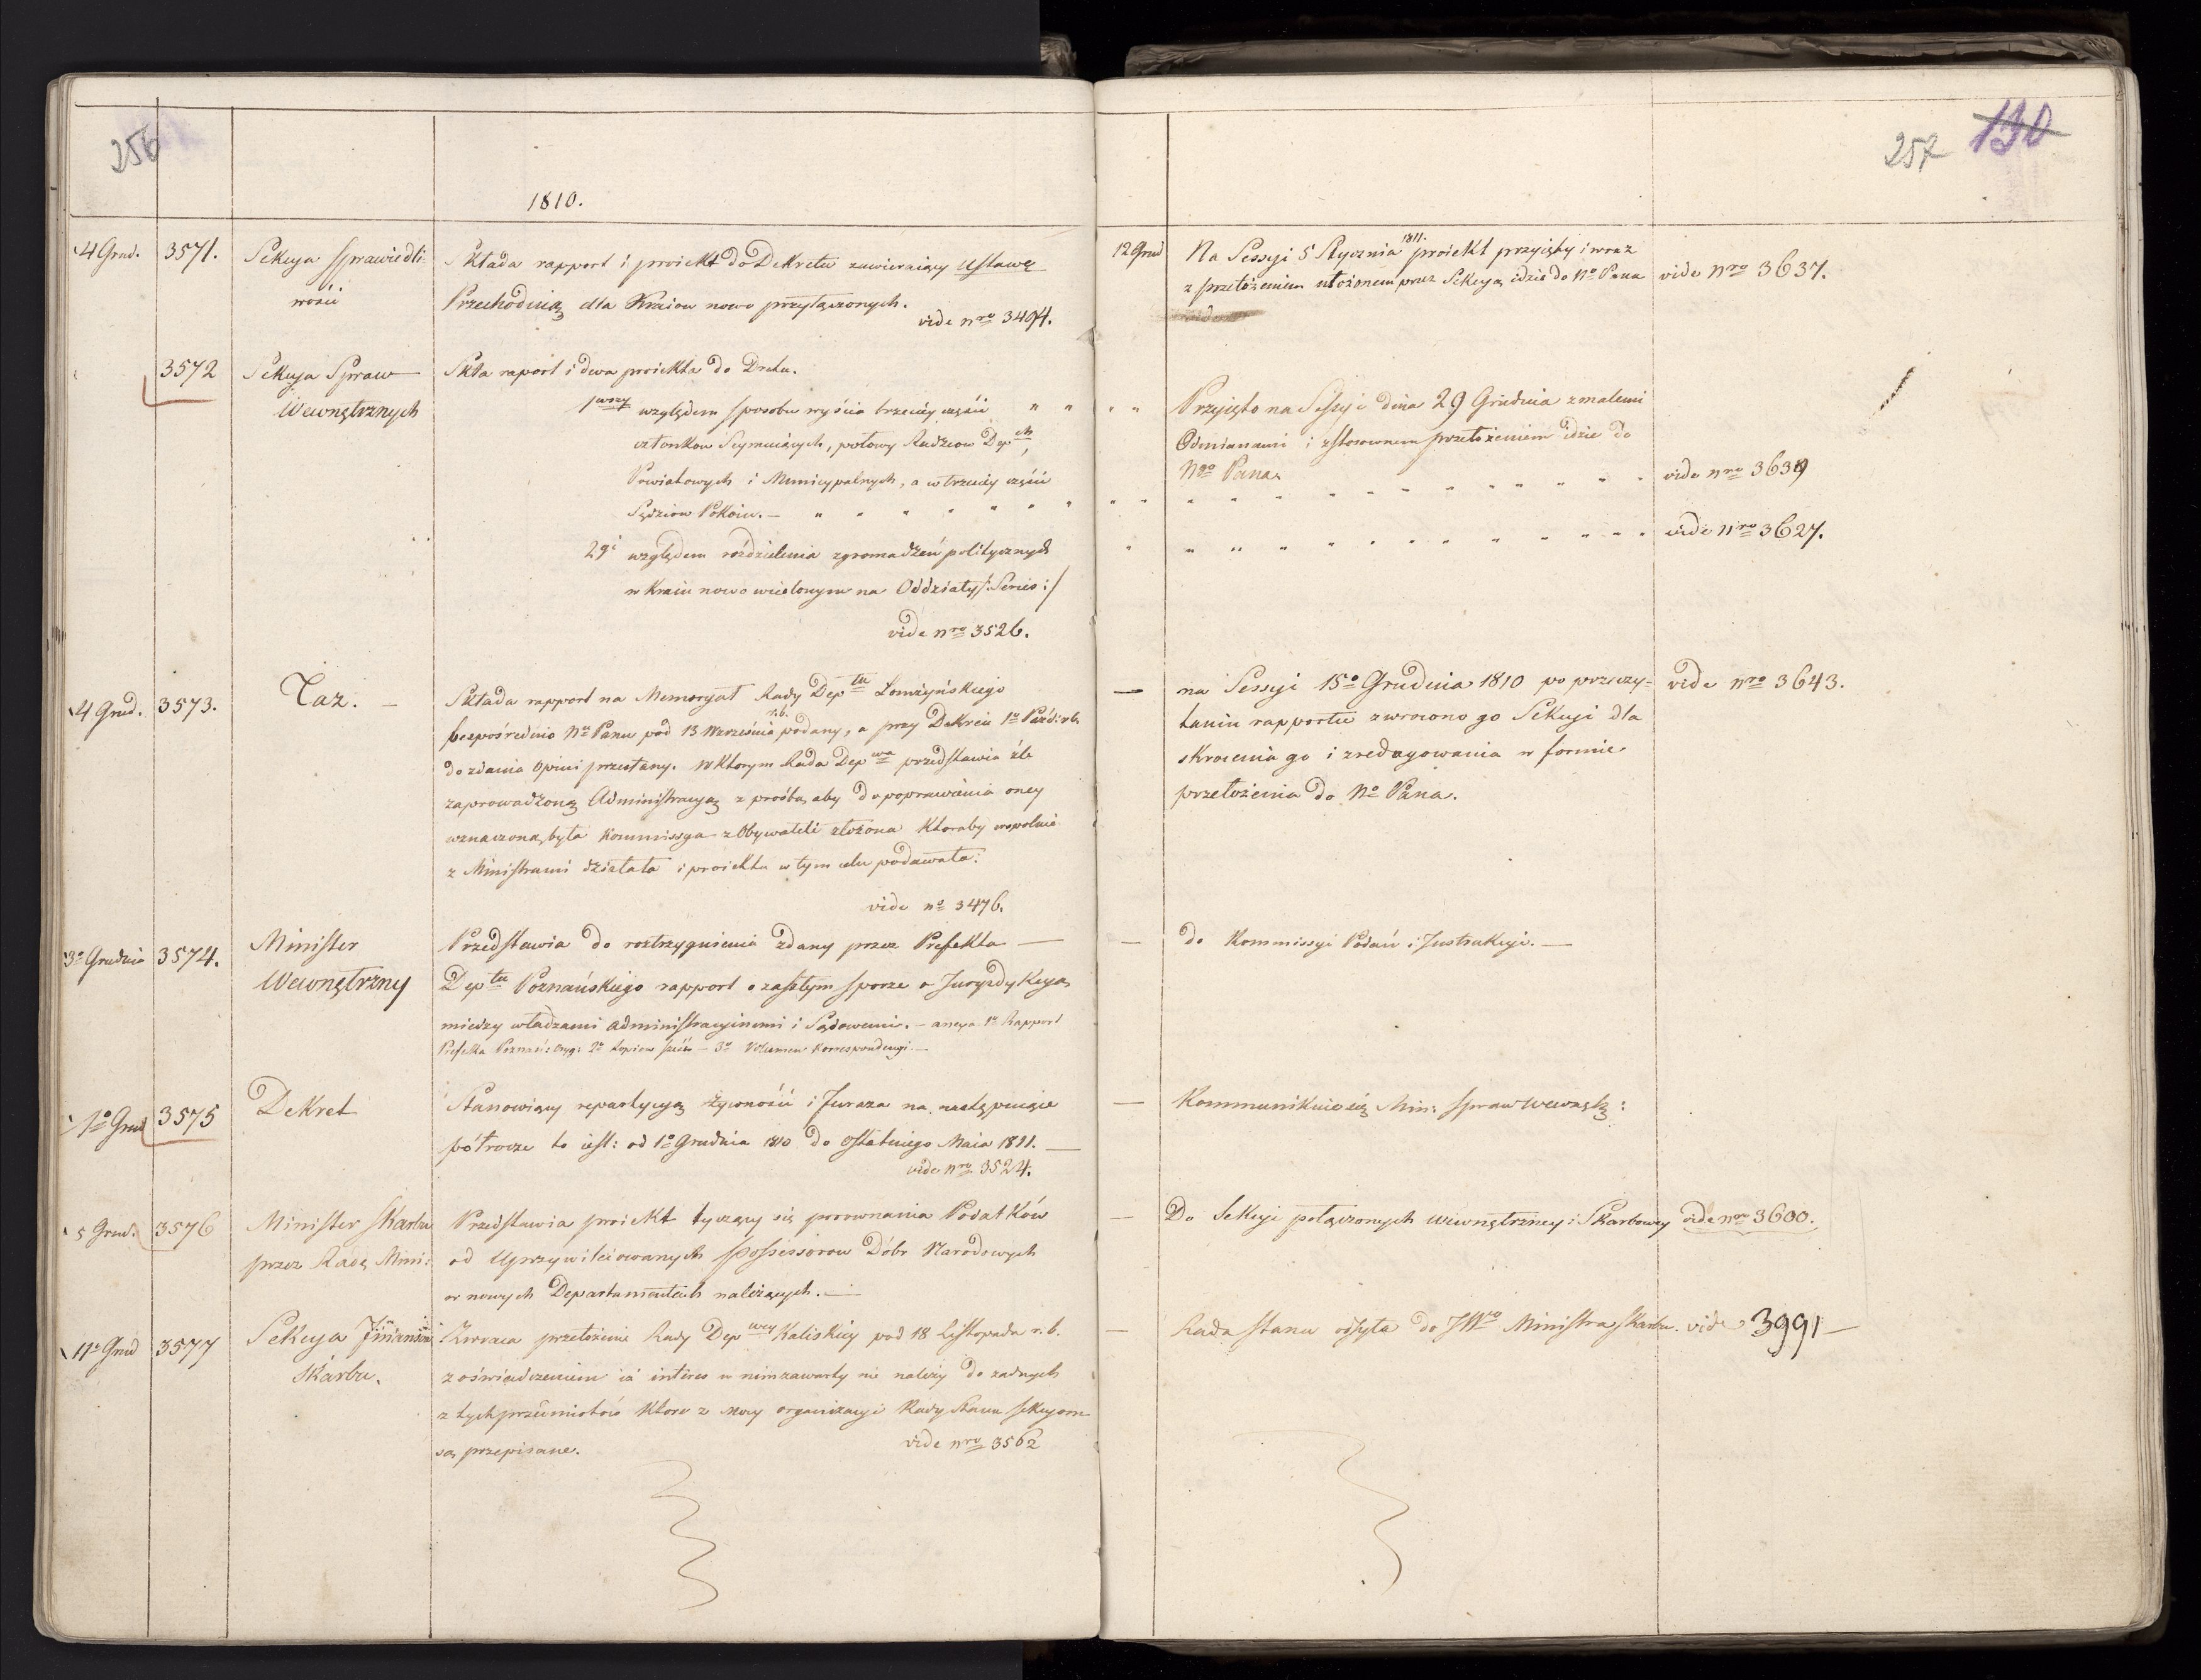 256
1810.
4 Grud. 3571. Sekcya Sprawiedli:
wości
Składa rapport i proiekt do Dekretu zawieraiący Ustawę
Przechodnią dla Kraiow nowo przyłączonych.
vide nro 3494.
3572 Sekcya Spraw
Wewnętrznych
Skła raport i dwa proiekta do Dretu.
1wszy względem sposobu wyścia trzeciey części " "
członkow Seymuiących, połowy Radzcow Dep
Powiatowych i Municypalnych, a w trzeciey części
Sędziow Pokoiu. — " " " " " " "
2gi względem rozdzielenia zgromadzeń politycznych
w Kraiu nowo wcielonym na Oddziały /: Series :/
vide nro 3526.
4 Grud. 3573. Taż. —
Składa rapport na Memoryał Rady Deptu Łomżyńskiego
r.b.
bezpośrednio No Panu pod 13 Września podany, a przy Dekrecie 1o Paźd: rb.
do zdania Opinii przesłany. w ktorym Rada Depwa przedstawia źle
zaprowadzoną Administracyą z prośbą, aby do poprawienia oney
wznaczona, była Kommissya z Obywateli złożona ktoraby wspolnie
z Ministrami działała i proiekta w tym celu podawała.
vide no 3476.
3o Grudnia 3574. Minister
Wewnętrzny
Przedstawia do roztrzygnienia zdany przez Prefekta —
Deptu Poznańskiego rapport o zaszłym sporze o Juryzdykcyą
miedzy władzami administracyinemi i Sądowemi. — anexa 1o Rapport
Prefekta Poznań: Oryg: 2o kopiow sześć — 3o Volumen Korrespondencyi —
1o Grud 3575 Dekret
Stanowiący repartycyą żywności i furaża na następuiące
półrocze to iest: od 1o Grudnia 1810 do ostatniego Maia 1811. —
vide nro 3524.
5 Grud. 3576 Minister Skarbu
przez Radę Mini:
Przedstawia proiekt tyczący się porownania Podatków
od Uprzywileiowanych Possessorow Dóbr Narodowych
w nowych Departamentach należących. —
11o Grud 3577 Sekcya Finansów
Skarbu.
Zwraca przełożenie Rady Depwey Kaliskiey pod 18 Listopada r.b.
z oświadczeniem iż interes w nim zawarty nie należy do żadnych
z tych przedmiotów ktore z mocy organizacyi Rady Stanu sekcyom
są przepisane.
vide nro 3562
257 130
1811.
12 Grud Na Sessyi 5 Stycznia proiekt przyięty i wraz
z przełożeniem ułożonem przez Sekcyą idzie do No Pana
vide nro 3637.
" " Przyięto na Sessyi dnia 29 Grudnia z małemi
Odmianami i z stosownem przełożeniem idzie do
Ngo Pana.
vide nro 3639
vide nro 3627.
— na Sessyi 15o Grudnia 1810 po przeczy=
taniu rapportu zwrocono go Sekcyi dla
skrocenia go i zredagowania w formie
przełożenia do No Pana.
vide nro 3643.
— do Kommissyi Podań i Instrukcyi. —
— Kommunikuie się Min: Spraw Wewnętz:
— Do Sekcyi połączonych wewnętrzney i Skarbowey vide nro 3600.
— Rada stanu odsyła do JWo Ministra Skarbu. vide 3991 —